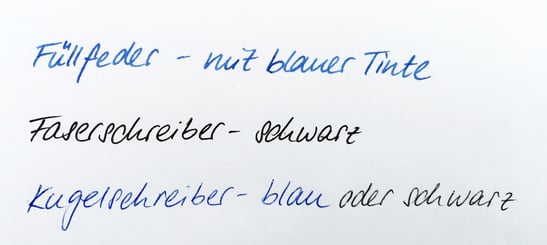 Füllfeder - mit blauer Tinte
Faserschreiber - schwarz
Kugelschreiber - blau oder schwarz